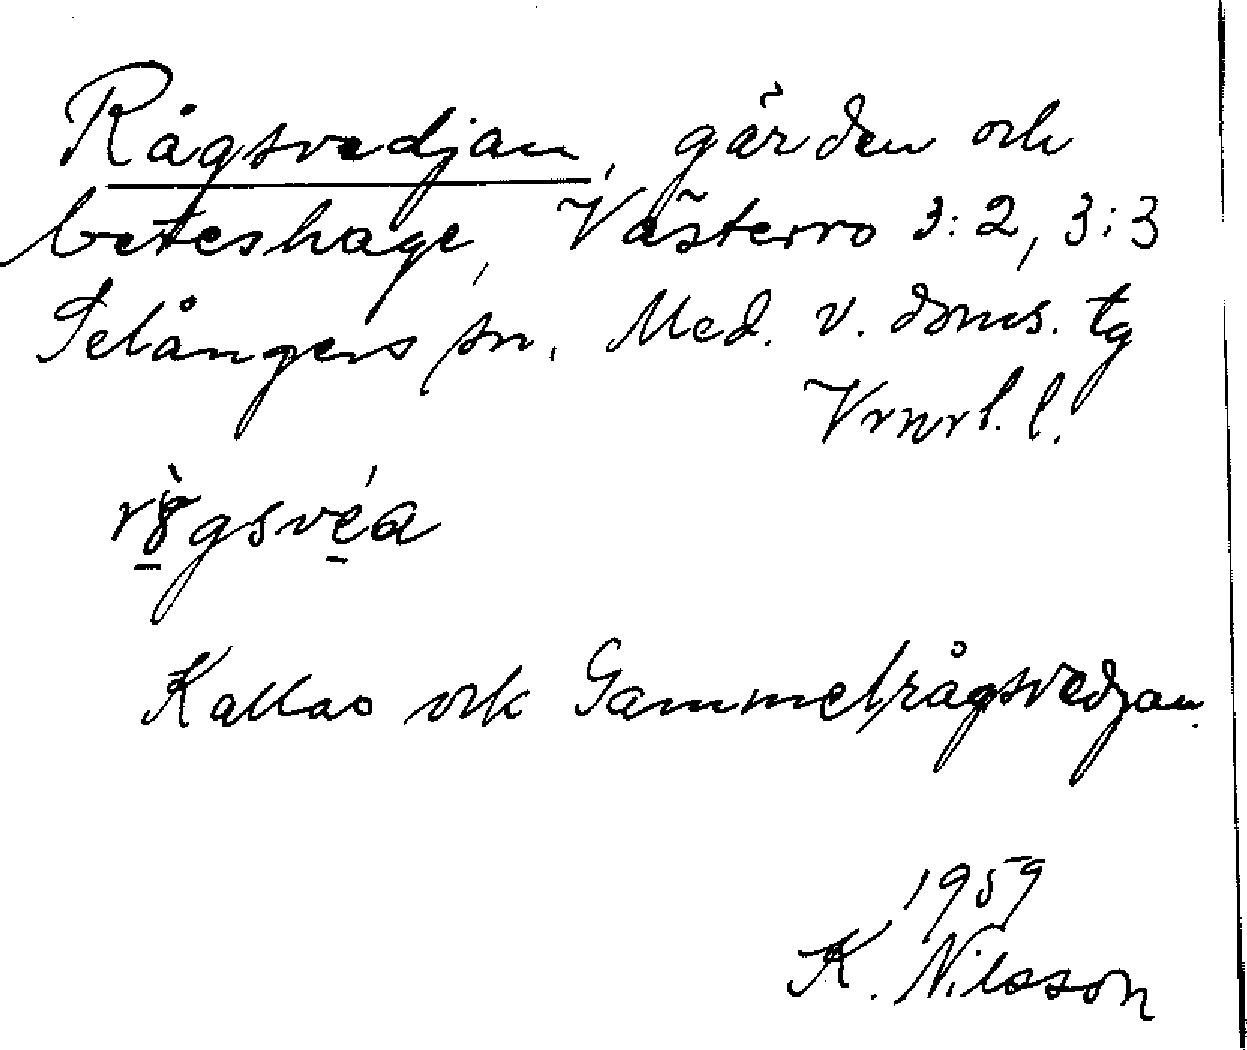 Rågsvedjan, gärden och
beteshage, Västerro 3:2, 3:3
Selångers sn. Med. v. doms. tg
Vrnrl. l.
gsvéa
Kallas ock Gammelrågsvedjan.
1959
K. Nilsson